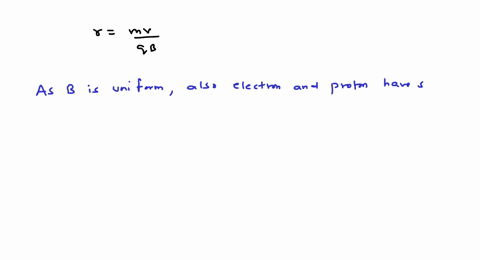 r = mv / qB
As B is uniform, also electron and proton have s